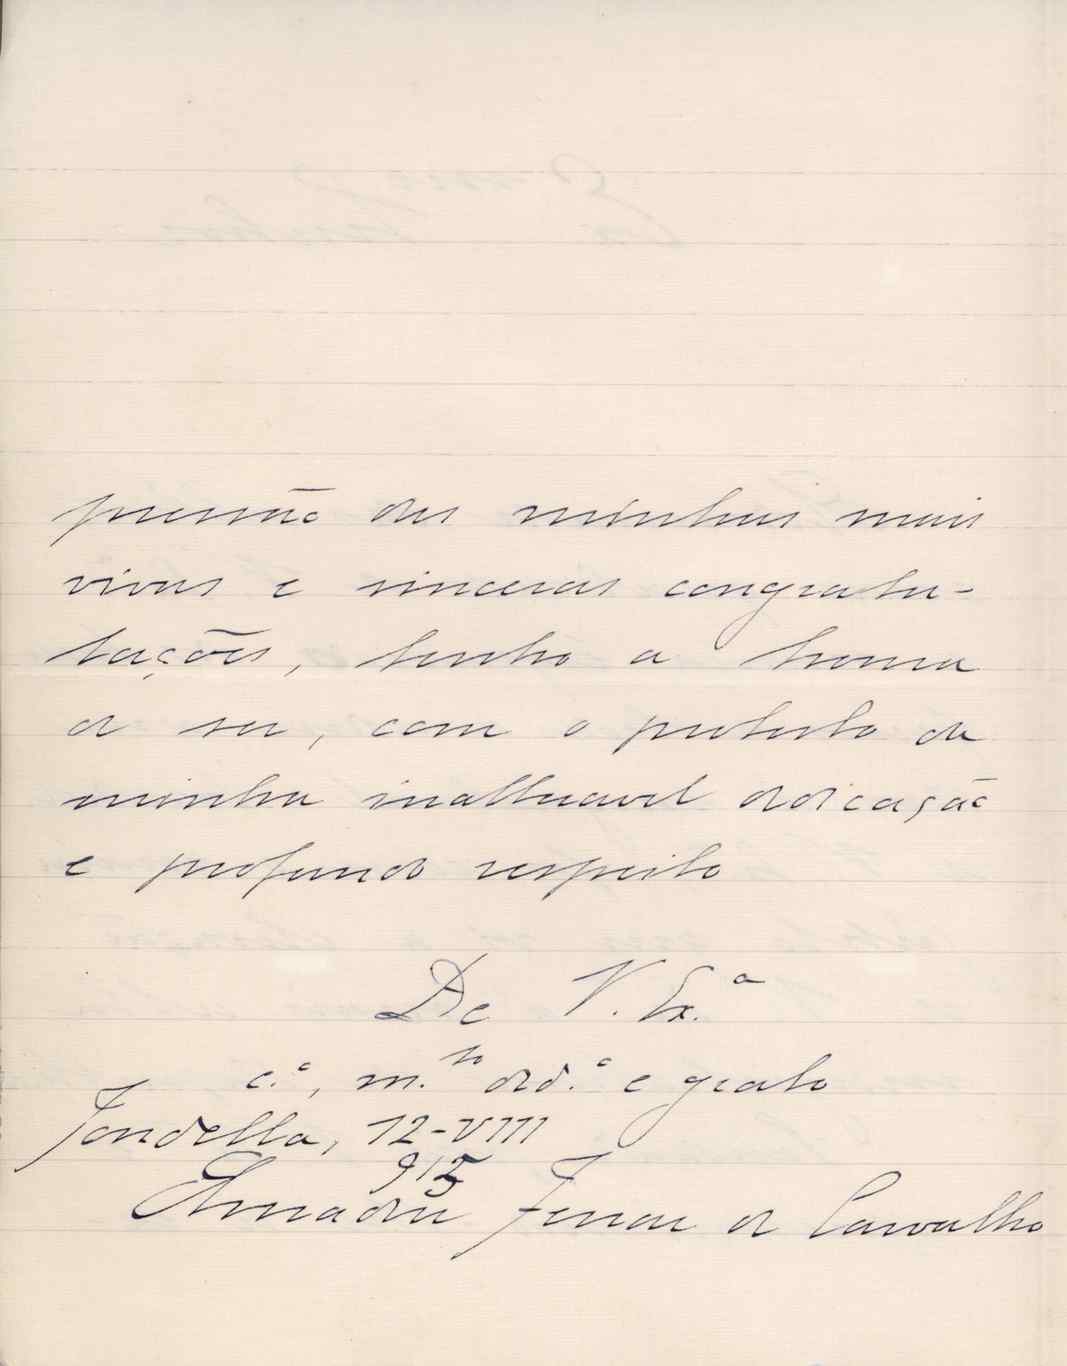 pressão das minhas mais
vivas e sinceras congratu-
lações, tenho a honra
de ser, com o protesto da
minha inalteravel dedicação
e profundo respeito
De V. Ex.ª
c.º, m.to ded.º e grato
Tondella, 12-VIII
915
Amadeu Ferraz de Carvalho